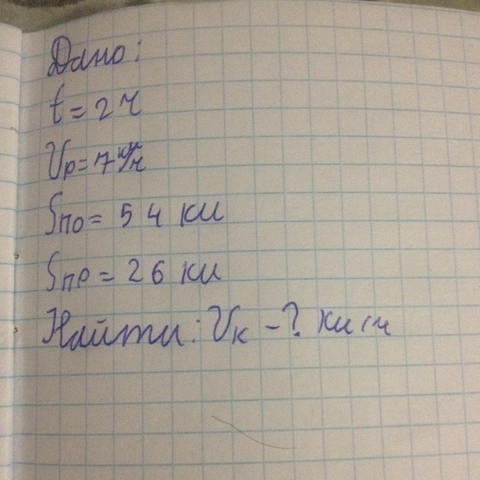 Дано:
t = 2 ч
Vр = 7 км/ч
Sпо = 54 км
Sпр = 26 км
Найти: Vк - ? км/ч